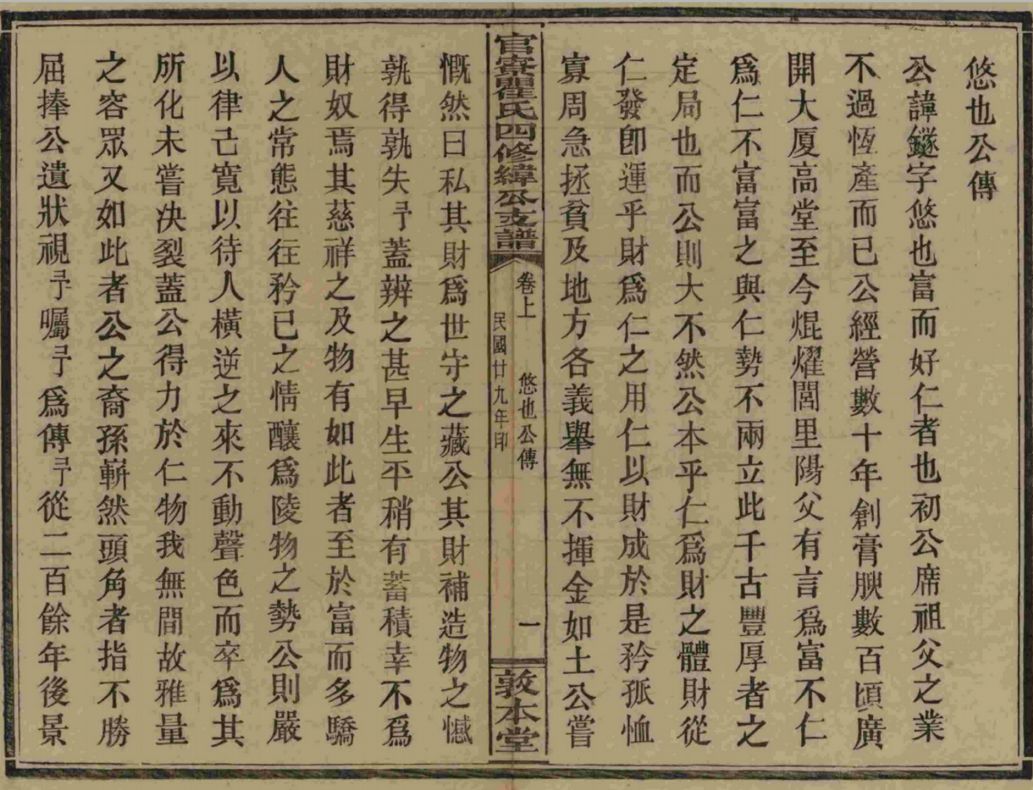 悠也公傳
公諱鐩字悠也富而好仁者也初公席祖父之業
不過恆產而已公經營數十年創膏腴數百頃廣
開大厦高堂至今焜燿閭里陽父有言為富不仁
爲仁不富富之與仁勢不兩立此千古豐厚者之
定局也而公則大不然公本乎仁爲財之體財從
仁發卽運乎財爲仁之用仁以財成於是矜孤恤
寡周急拯貧及地方各義舉無不揮金如土公嘗
官寮瞿氏四修緯公支譜
卷上
悠也公傳
民國廿九年印
一
敦本堂
慨然曰私其財爲世守之藏公其財補造物之憾
孰得孰失予蓋辨之甚早生平稍有蓄積幸不爲
財奴焉其慈祥之及物有如此者至於富而多驕
人之常態往往矜己之情釀爲陵物之勢公則嚴
以律己寬以待人橫逆之來不動聲色而卒爲其
所化未嘗決裂蓋公得力於仁物我無間故雅量
之容眾又如此者公之裔孫嶄然頭角者指不勝
屈捧公遺狀視予囑予爲傳予從二百餘年後景